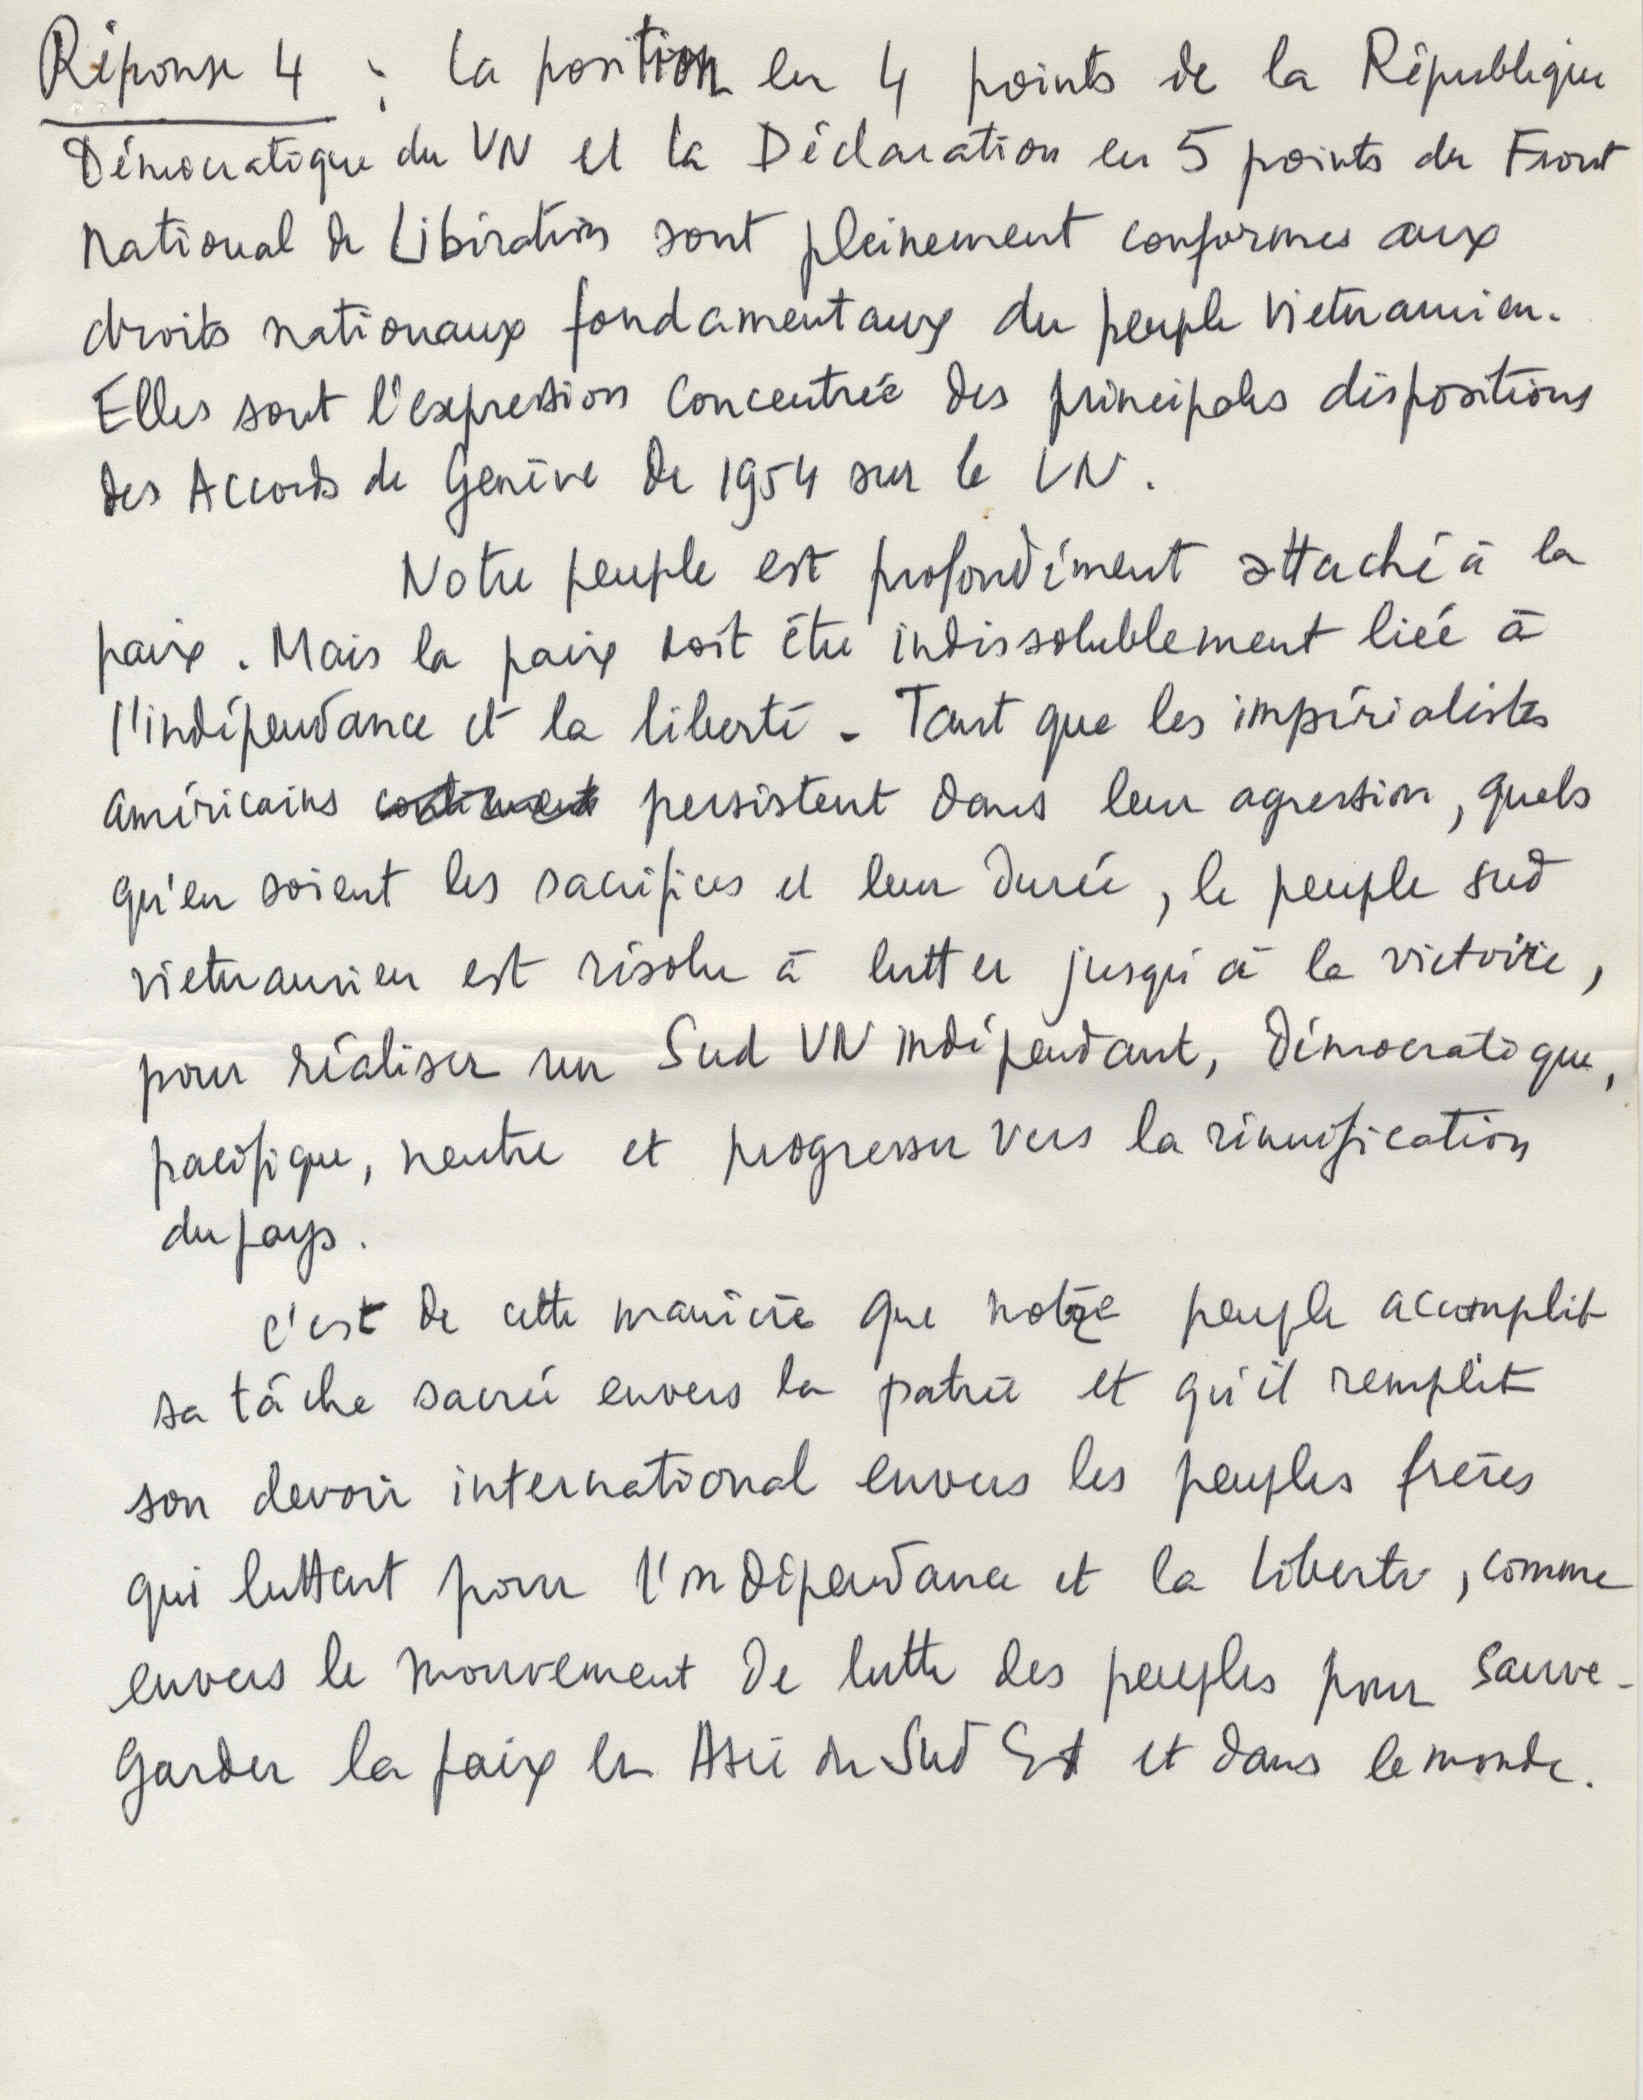 Réponse 4 : La position en 4 points de la République
Démocratique du VN et la Déclaration en 5 points du Front
National de Libération sont pleinement conformes aux
droits nationaux fondamentaux du peuple vietnamien.
Elles sont l'expression concentrée des principales dispositions
des Accords de Genève de 1954 sur le VN.
Notre peuple est profondément attaché à la
paix. Mais la paix doit être indissolublement liée à
l'indépendance et la liberté - Tant que les impérialistes
américains continuent persistent dans leur agression, quels
qu'en soient les sacrifices et leur durée, le peuple sud
vietnamien est résolu à lutter jusqu'à la victoire,
pour réaliser un Sud VN indépendant, démocratique,
pacifique, neutre et progresser vers la réunification
du pays.
C'est de cette manière que notre peuple accomplit
sa tâche sacrée envers la patrie et qu'il remplit
son devoir international envers les peuples frères
qui luttent pour l'indépendance et la liberté, comme
envers le mouvement de lutte des peuples pour sauve-
garder la paix en Asie du Sud Est et dans le monde.